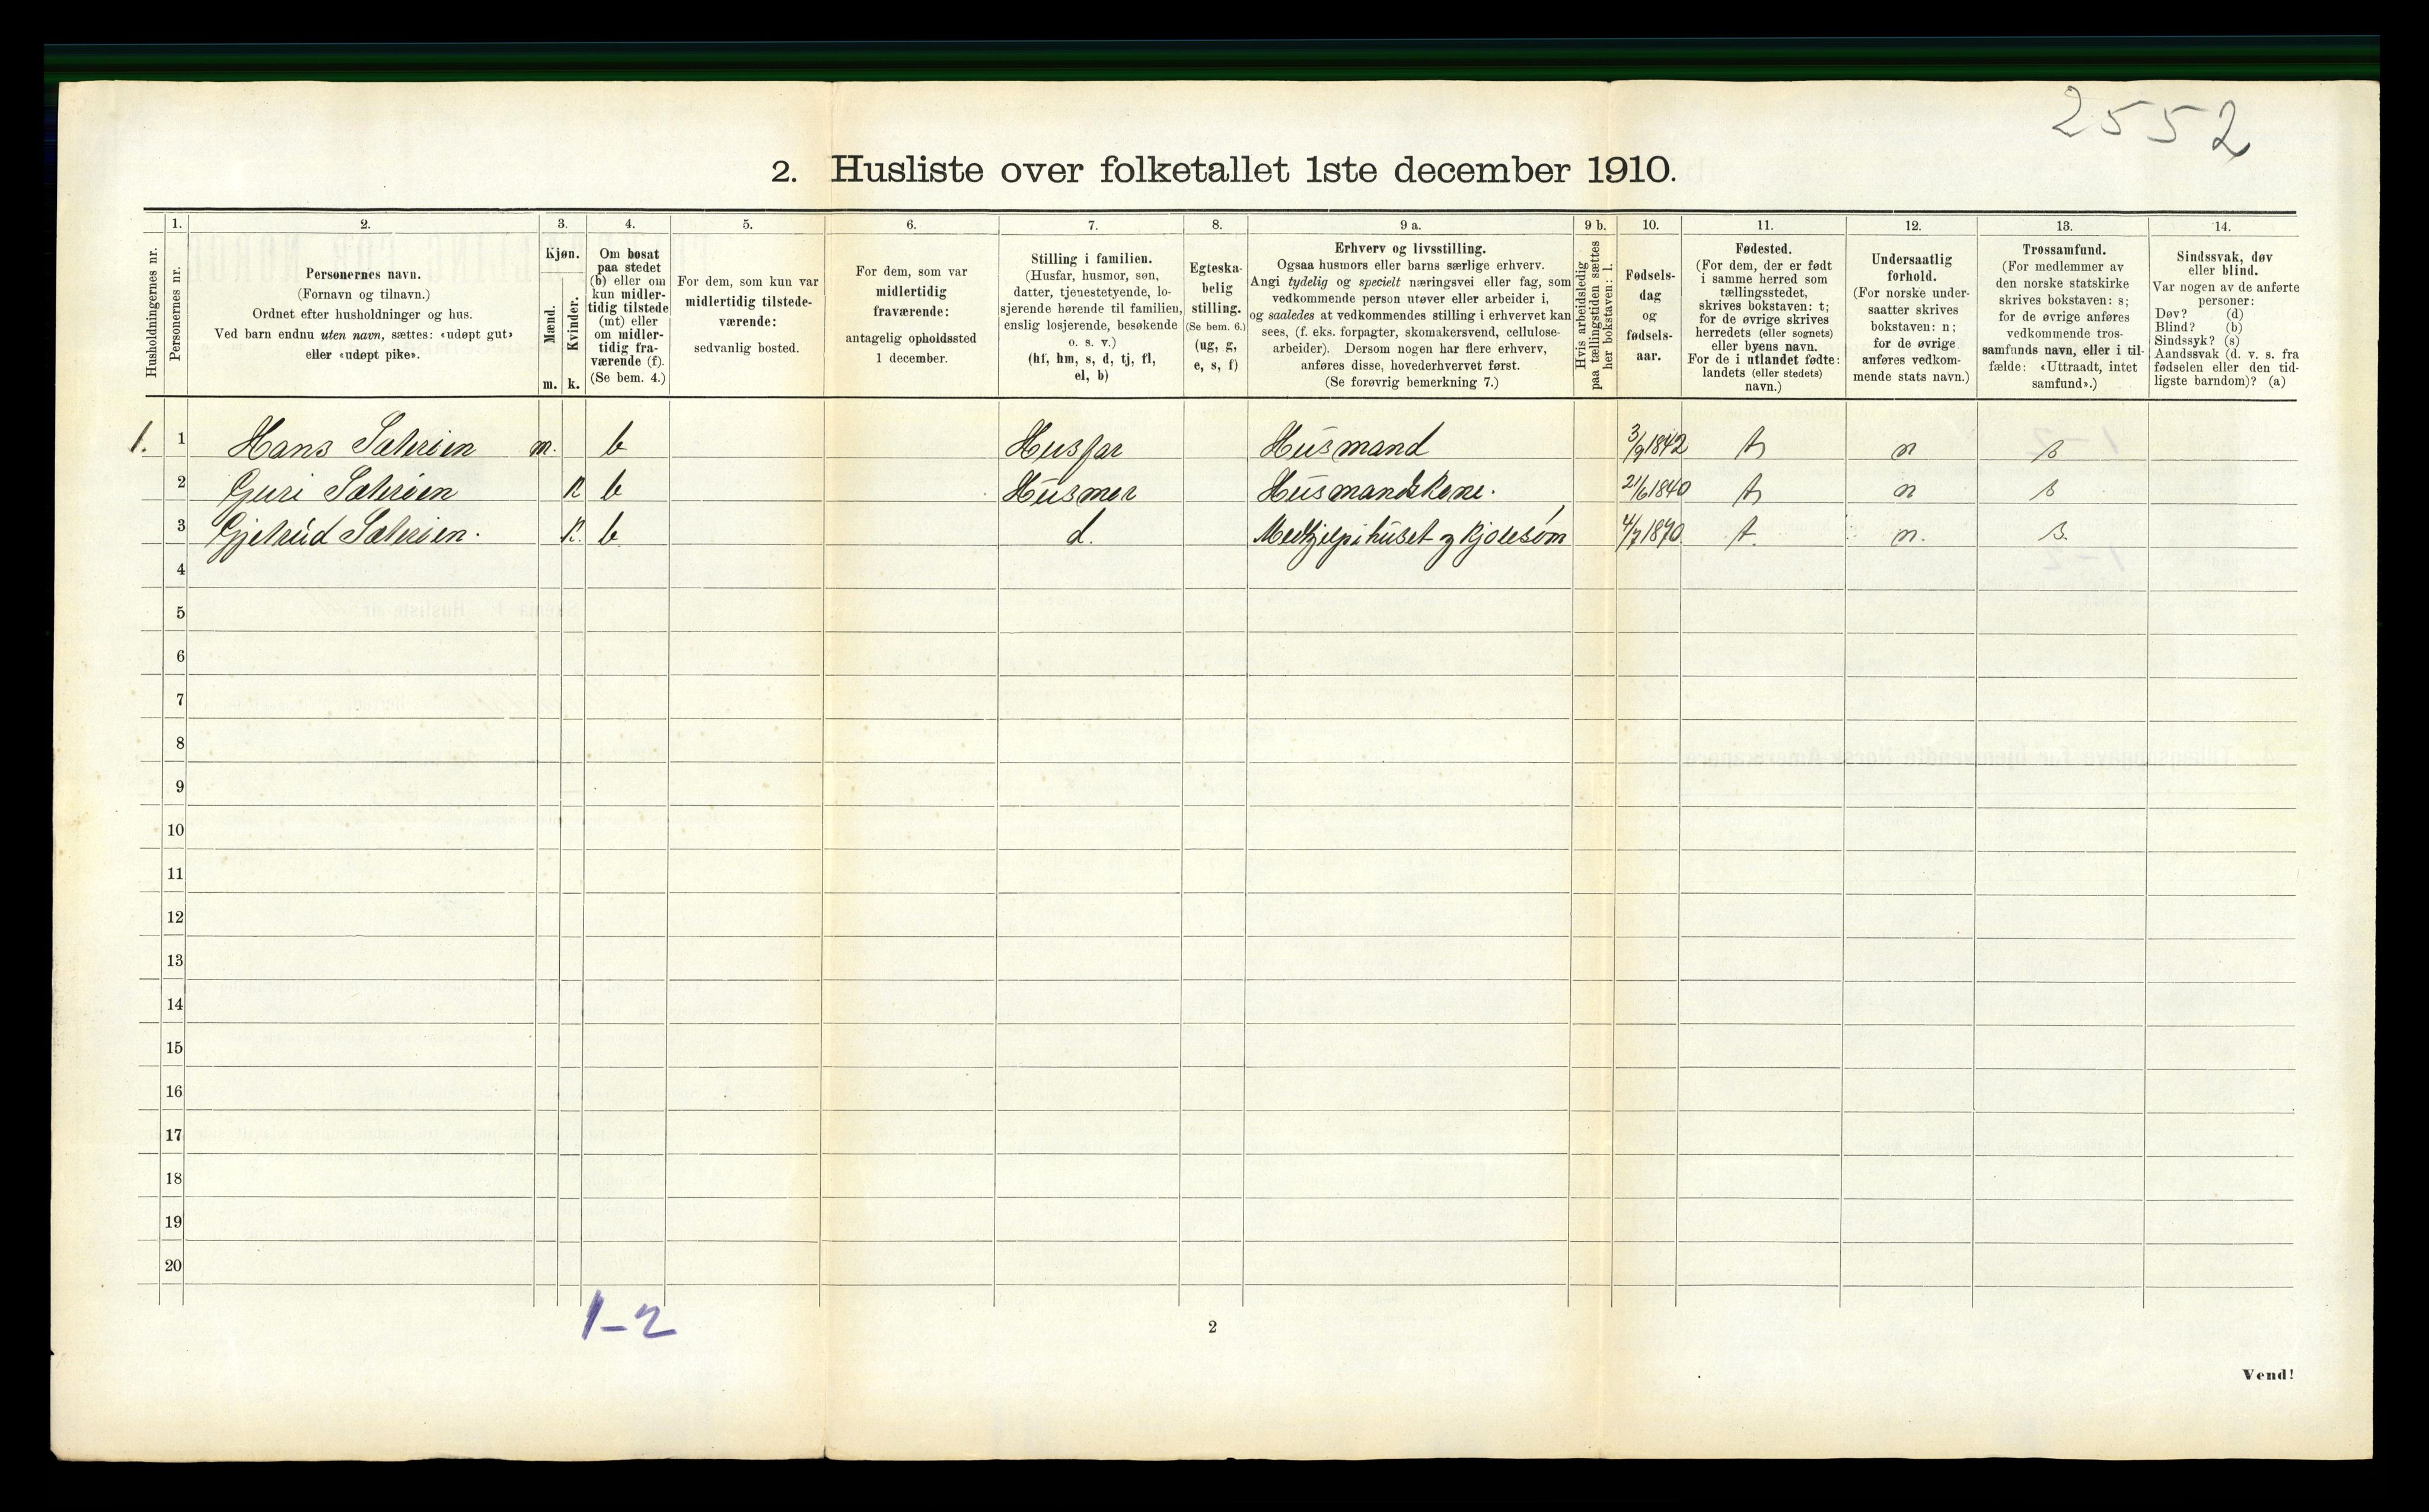 2552
2. Husliste over folketallet 1ste december 1910.
Husholdningernes nr.
1.
Personernes nr.
2.
Personernes navn.
(Fornavn og tilnavn.)
Ordnet efter husholdninger og hus.
Ved barn endnu uten navn, sættes: «udøpt gut»
eller «udøpt pike».
3.
Kjøn.
Mænd.
Kvinder.
m. k.
4.
Om bosat
paa stedet
(b) eller om
kun midler-
tidig tilstede
(mt) eller
om midler-
tidig fra-
værende (f).
(Se bem. 4.)
5.
For dem, som kun var
midlertidig tilstede-
værende:
sedvanlig bosted.
6.
For dem, som var
midlertidig
fraværende:
antagelig opholdssted
1 december.
7.
Stilling i familien.
(Husfar, husmor, søn,
datter, tjenestetyende, lo-
sjerende hørende til familien,
enslig losjerende, besøkende
o. s. v.)
(hf, hm, s, d, tj, fl,
el, b)
8.
Egteska-
belig
stilling.
(Se bem. 6.)
(ug, g,
e, s, f)
9 a.
Erhverv og livsstilling.
Ogsaa husmors eller barns særlige erhverv.
Angi tydelig og specielt næringsvei eller fag, som
vedkommende person utøver eller arbeider i,
og saaledes at vedkommendes stilling i erhvervet kan
sees, (f. eks. forpagter, skomakersvend, cellulose-
arbeider). Dersom nogen har flere erhverv,
anføres disse, hovederhvervet først.
(Se forøvrig bemerkning 7.)
9 b.
Hvis arbeidsledig
paa tællingstiden sættes
her bokstaven: l.
10.
Fødsels-
dag
og
fødsels-
aar.
11.
Fødested.
(For dem, der er født
i samme herred som
tællingsstedet,
skrives bokstaven: t;
for de øvrige skrives
herredets (eller sognets)
eller byens navn.
For de i utlandet fødte:
landets (eller stedets)
navn.)
12.
Undersaatlig
forhold.
(For norske under-
saatter skrives
bokstaven: n;
for de øvrige
anføres vedkom-
mende stats navn.)
13.
Trossamfund.
(For medlemmer av
den norske statskirke
skrives bokstaven: s;
for de øvrige anføres
vedkommende tros-
samfunds navn, eller i til-
fælde: «Uttraadt, intet
samfund».)
14.
Sindssvak, døv
eller blind.
Var nogen av de anførte
personer:
Døv? (d)
Blind? (b)
Sindssyk? (s)
Aandssvak (d. v. s. fra
fødselen eller den tid-
ligste barndom)? (a)
1. 1 Hans m. b Husfar Husmand 3/9 1842 t n s
2 Guri k b Husmor Husmandskone. 21/6 1840 t n s
3 k. b d. Medhjelp i huset og kjolesøm 4/7 1870 t. n. s.
4
5
6
7
8
9
10
11
12
13
14
15
16
17
18
19
20
1-2
2
Vend!